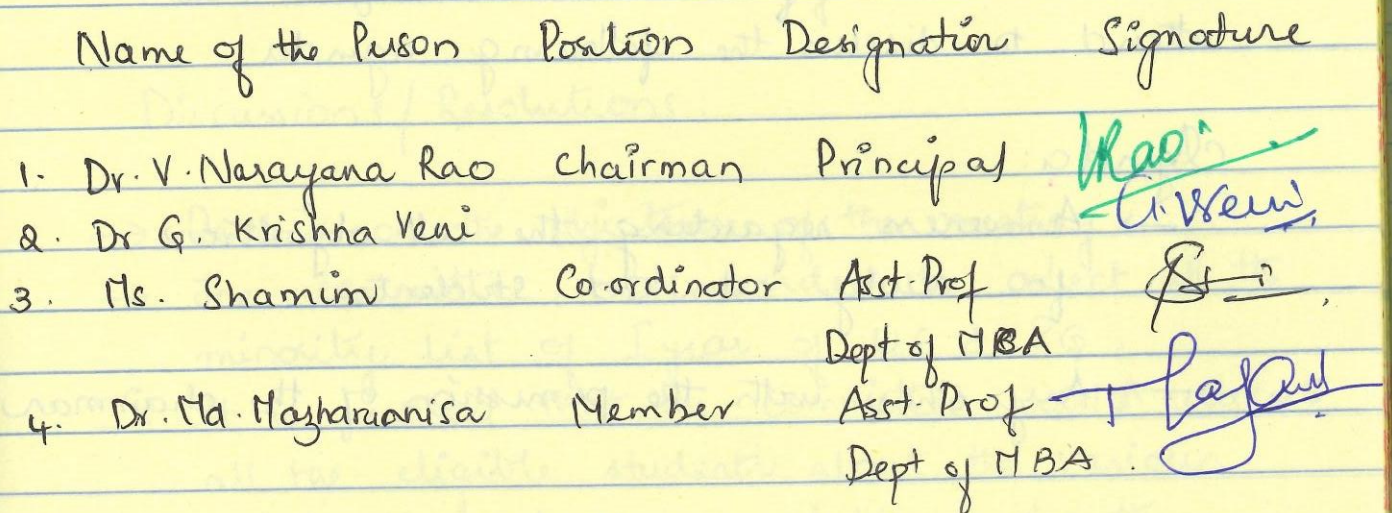 Name of the Person Position Designation Signature
1. Dr. V. Narayana Rao Chairman Principal VRao
2. Dr G. Krishna Veni G.Veni
3. Ms. Shamim Co.ordinator Asst. Prof
Dept of MBA
4. Dr. Md. Mazharunnisa Member Asst. Prof
Dept of MBA.